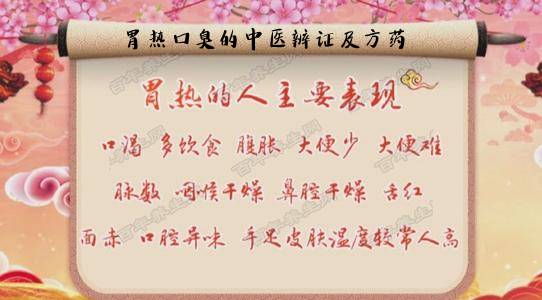 胃热口臭的中医辨证及方药
胃热的人主要表现
口渴 多饮食 膗胀 大便少 大便难
脉数 咽喉干燥 鼻腔干燥 舌红
面赤 口腔异味 手足皮肤温度较常人高